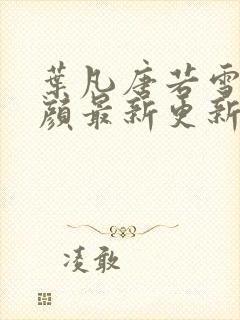 葉凡唐若雪
顔最新更新
凌敢